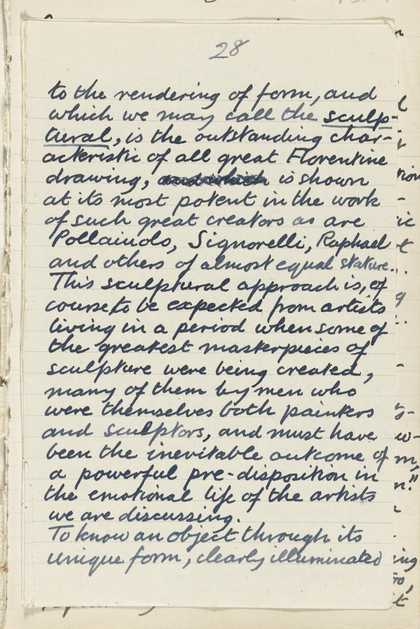 28
to the rendering of form, and
which we may call the sculp-
tural, is the outstanding char-
acteristic of all great Florentine
drawing, and which is shown
at its most potent in the work
of such great creators as are
Pollaiuolo, Signorelli, Raphael
and others of almost equal stature...
This sculptural approach is, of
course, to be expected from artists
living in a period when some of
the greatest masterpieces of
sculpture were being created,
many of them by men who
were themselves both painters
and sculptors, and must have
been the inevitable outcome of
a powerful pre-disposition in
the emotional life of the artists
we are discussing.
To know an object through its
unique form, clearly illuminated